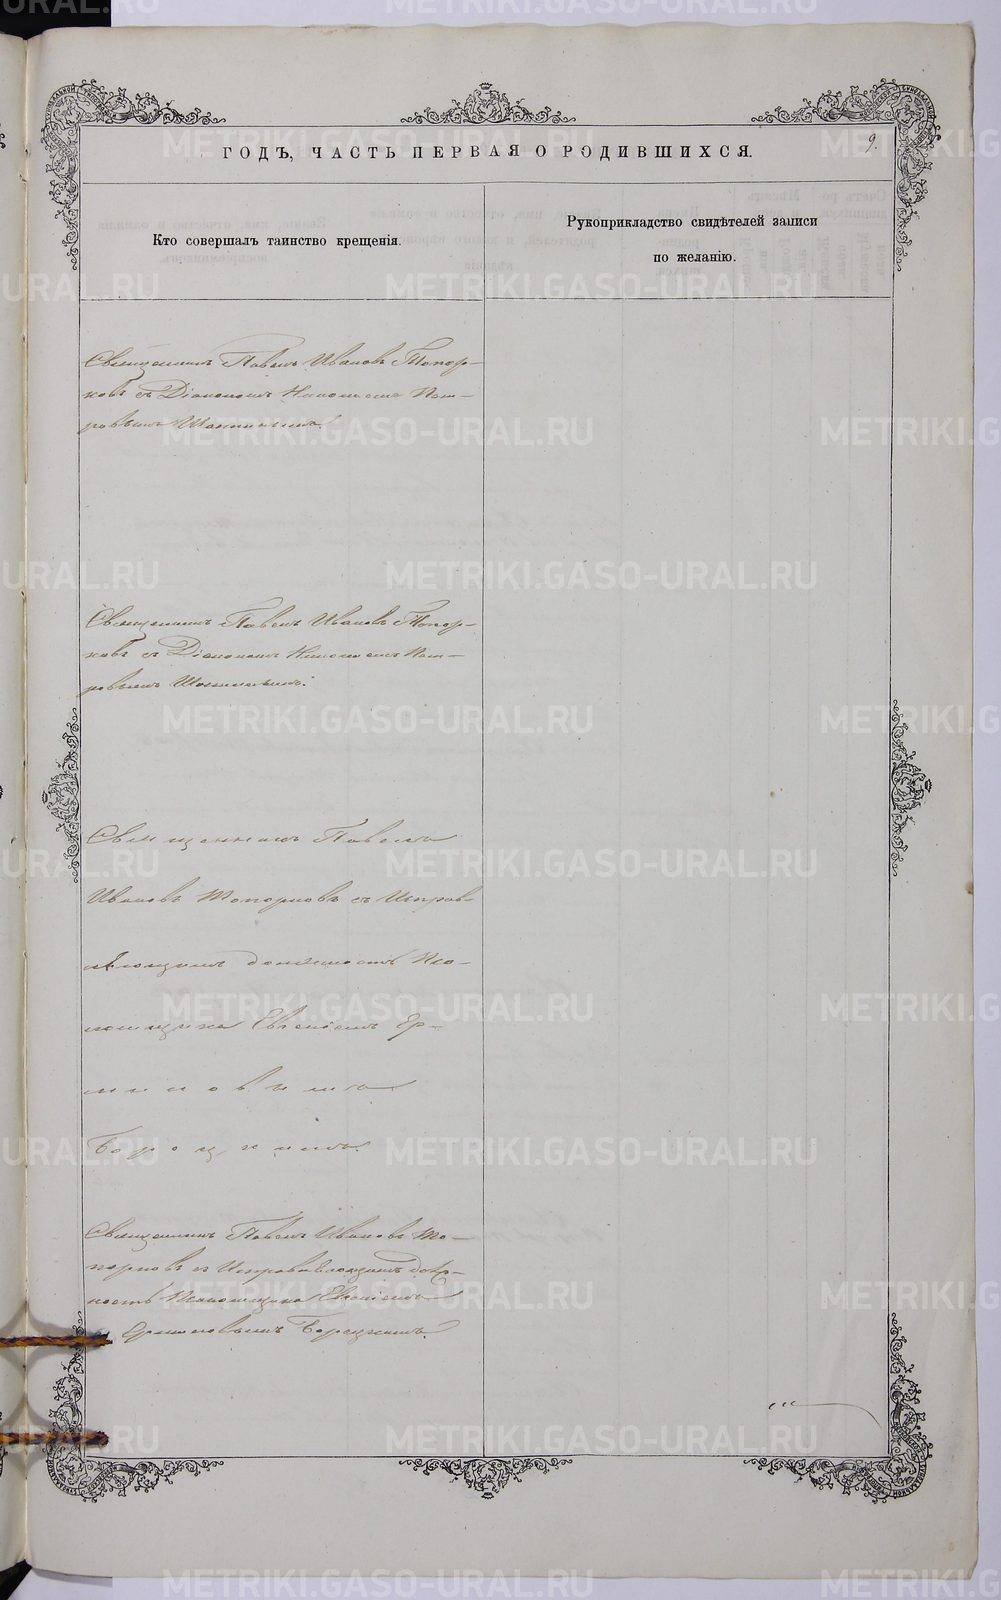 9.
ГОДЪ, ЧАСТЬ ПЕРВАЯ О РОДИВШИХСЯ.
Кто совершалъ таинство крещенія.
Рукоприкладство свидѣтелей записи
по желанію.
Священникъ Павелъ Ивановъ Топор-
ковъ съ Діакономъ Пет-
ровымъ
Священникъ Павелъ Ивановъ Топор-
ковъ съ Діакономъ Пет-
ровымъ
Священникъ Павелъ
Ивановъ Топорковъ съ Исправ-
ляющимъ должность Пса-
ломщика Евгеніемъ Ер-
миновымъ
Борецкимъ.
Священникъ Павелъ Ивановъ То-
порковъ съ Исправляющимъ долж-
ность Псаломщика Евгеніемъ
Ерминовымъ Борецкимъ.
METRIKI.GASO-URAL.RU